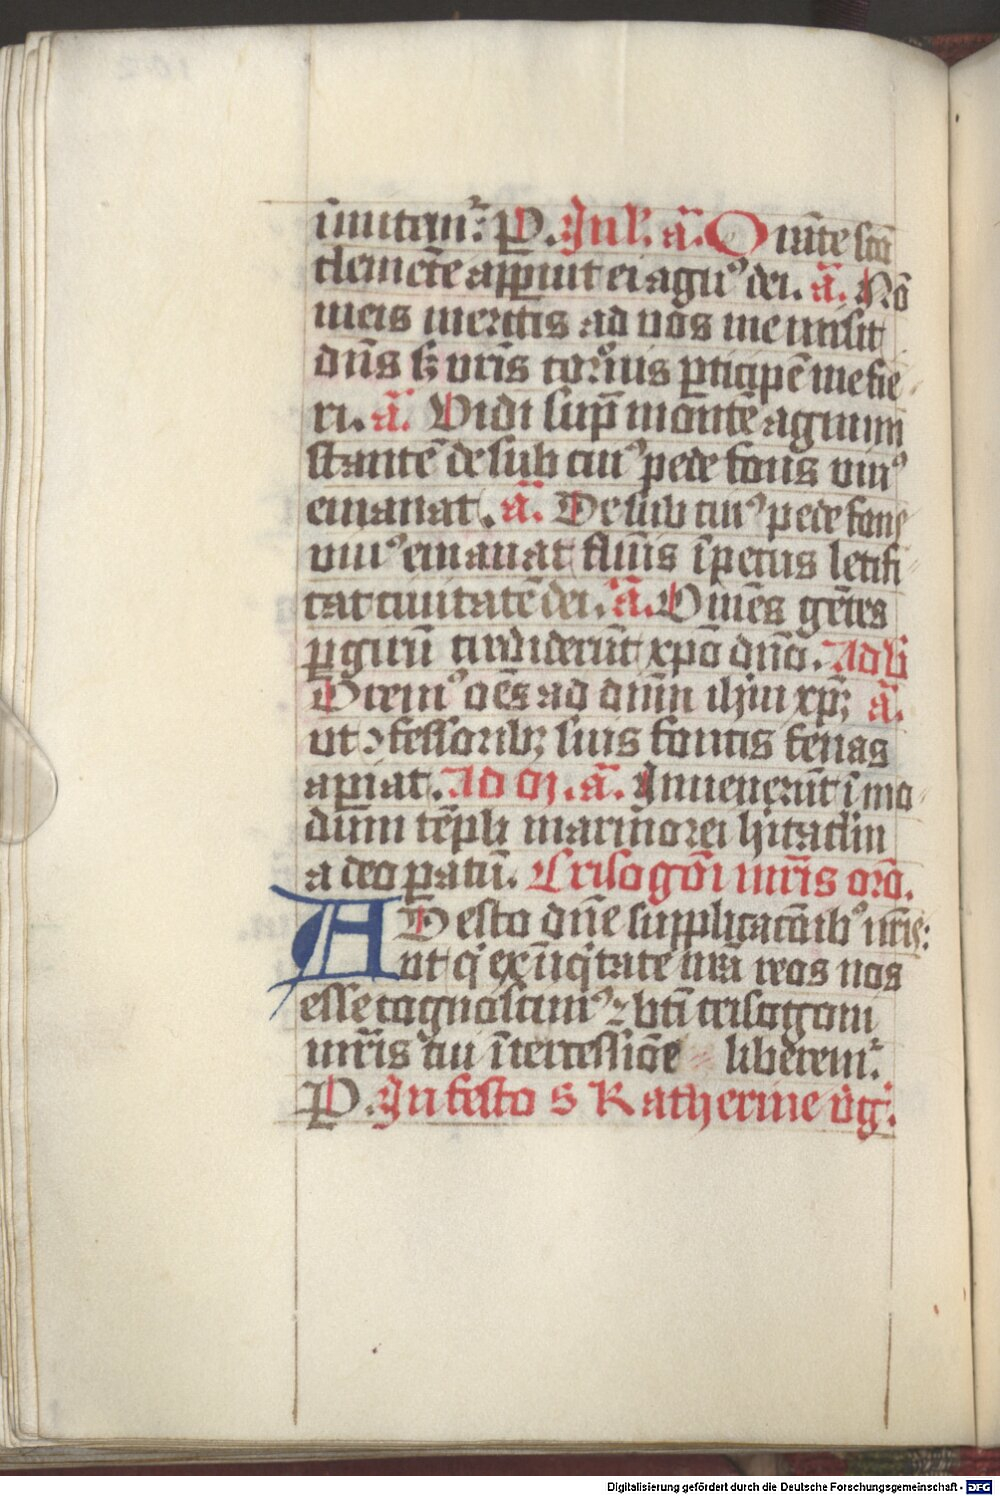 imitem᷑. P. In l'. a᷑. Orāte sctō
clemēte apparuit ei agn᷒ dei. ā. Nō
meis meritis ad vos me misit
dn̄s sꝫ vrīs coronis ꝑticipē me fie
ri. ā. Vidi supͣ montē agnum
stantē de sub cui᷒ pede fons viu᷒
emanat. ā. De sub cui᷒ pede fons
viu᷒ emanat flūis īpetus letifi
cat ciuitatē dei. ā. Omēs gētes
ꝑ girū crediderūt xp̄o dn̄o. Ad b̄
Orem᷒ oēs ad dnm̄ ihm xp̄m ā.
ut ꝯfessoribꝫ suis fontis venas
aperiat. Ad m̄. ā. Inuenerūt ī mo
dum tēpli marmorei hitaclm
a deo paratū. Crisogōi mr̄is orō.
ADesto dn̄e supplicacōib᷒ nrīs:
ut qͥ ex īiqͥtate nrā reos nos
esse cognoscim᷒ ⁊ btī crisogoni
mr̄is tui ītercessiōe liberem᷑.
P. In festo s Katherine v̄ḡ.
Digitalisierung gefördert durch die Deutsche Forschungsgemeinschaft - DFG